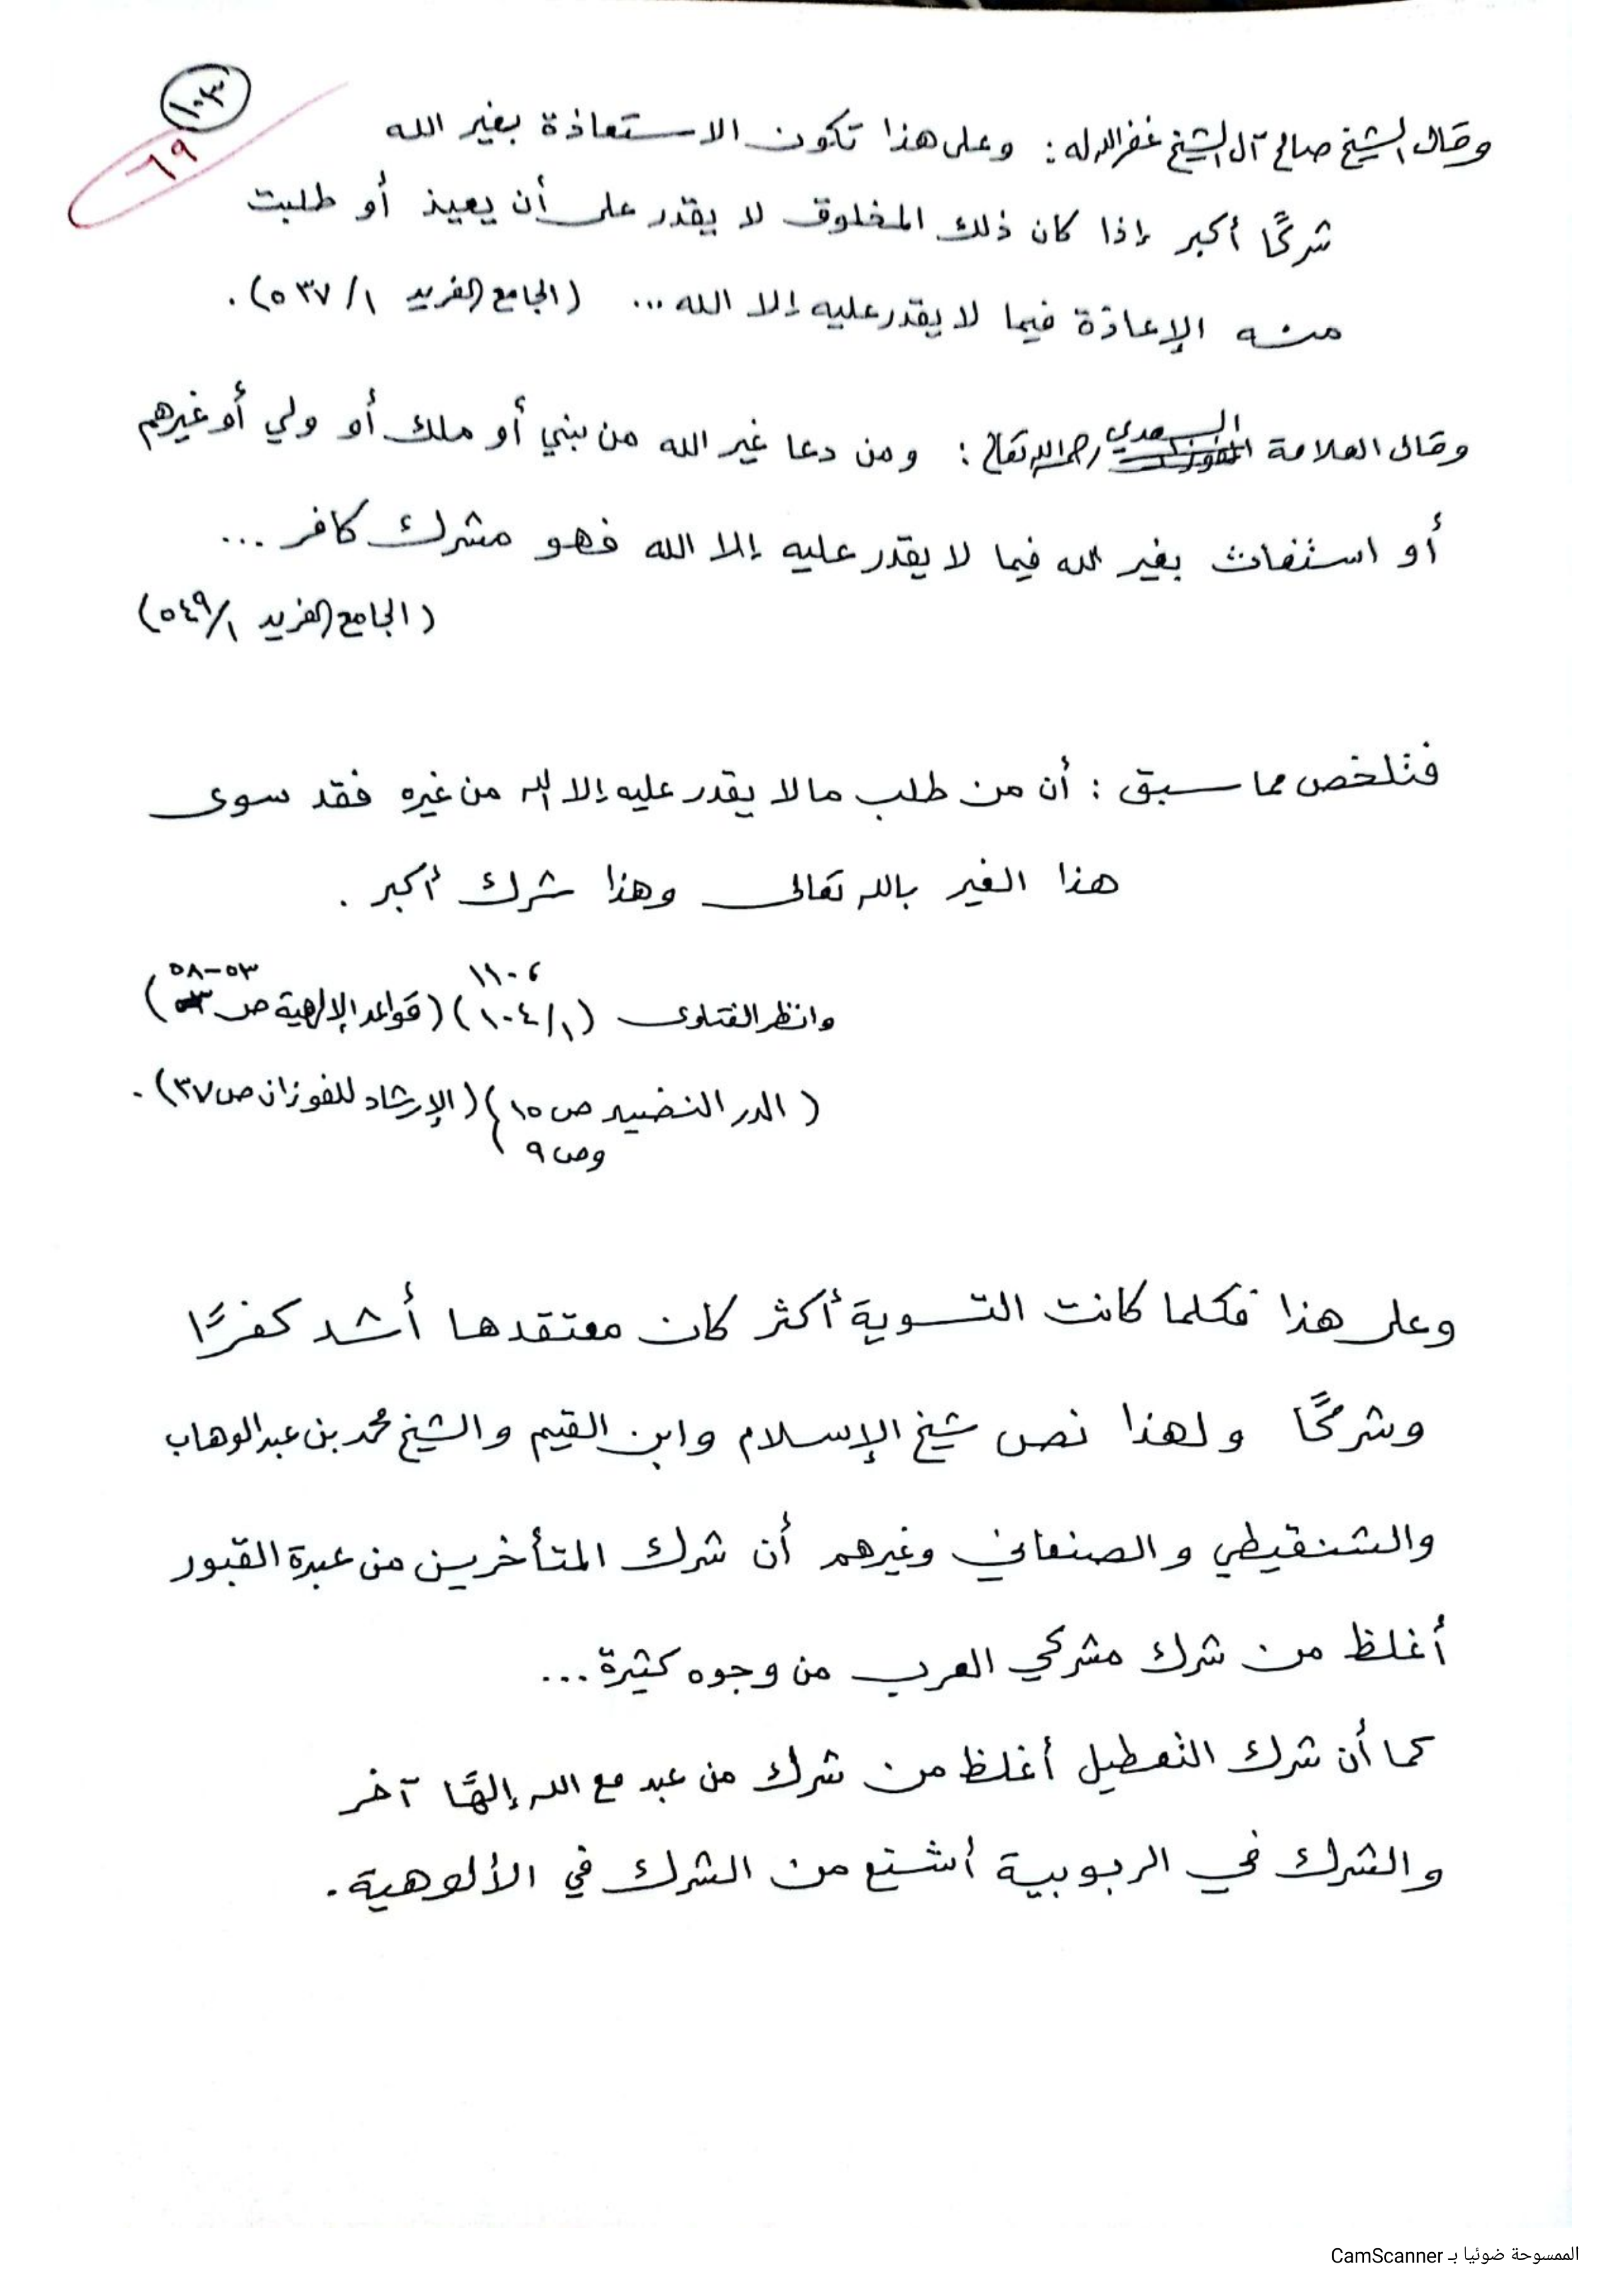 ١٠٣
٦٩
وقال الشيخ صالح آل الشيخ غفر الله له : وعلى هذا تكون الاستعاذة بغير الله
شركًا أكبر إذا كان ذلك المخلوق لا يقدر على أن يعيذ أو طلبت
منه الإعاذة فيما لا يقدر عليه إلا الله ... (الجامع الفريد ١/ ٥٣٧) .
وقال العلامة السعدي رحمه الله تعالى : ومن دعا غير الله من نبي أو ملك أو ولي أو غيرهم
أو استغاث بغير الله فيما لا يقدر عليه إلا الله فهو مشرك كافر ...
(الجامع الفريد ١/ ٥٤٩)
فتلخص مما سبق : أن من طلب مالا يقدر عليه إلا الله من غيره فقد سوى
هذا الغير بالله تعالى وهذا شرك أكبر .
وانظر الفتاوى (١/ ١٠٤ ، ١١٠) (قواعد الإلهية ص ٥٣-٥٨)
(الدر النضيد ص ١٥ وص ٩) (الإرشاد للفوزان ص ٣٧) .
وعلى هذا فكلما كانت التسوية أكثر كان معتقدها أشد كفرًا
وشركًا ولهذا نص شيخ الإسلام وابن القيم والشيخ محمد بن عبد الوهاب
والشنقيطي والصنعاني وغيرهم أن شرك المتأخرين من عبدة القبور
أغلظ من شرك مشركي العرب من وجوه كثيرة ...
كما أن شرك التعطيل أغلظ من شرك من عبد مع الله إلهًا آخر
والشرك في الربوبية أشنع من الشرك في الألوهية .
الممسوحة ضوئيا بـ CamScanner